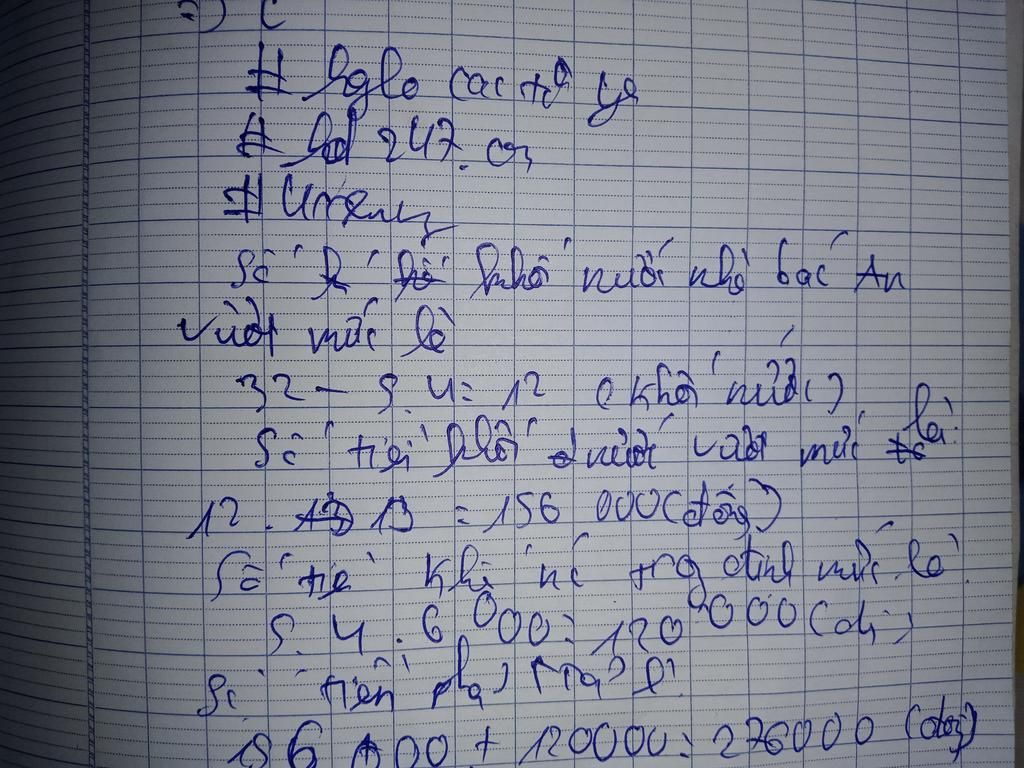 =) C
# các
# 247.
#
Số khối nước nhà bác An
vượt mức là
32 - 5.4 = 12 (khối nước)
Số tiền khối nước vượt mức là:
12 . 13 = 156 000 (đồng)
Số tiền khối nc trg định mức là
5.4.6000 = 120 000 (đ)
Số tiền phải trả là
156 000 + 120000 = 276000 (đồng)